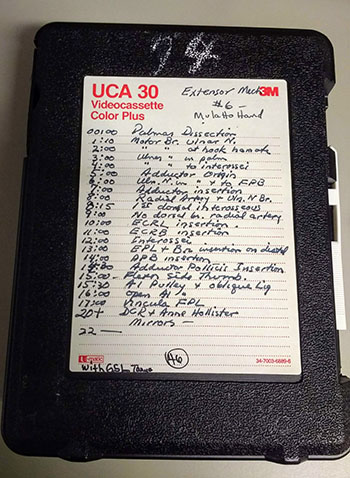 74
UCA 30
Videocassette
Color Plus
3M
Extensor Mech
#6 -
Mulatto Hand
00:00 Palmar Dissection
1:10 Motor Br. Ulnar N.
2:00 " " at hook hamate
3:00 Ulnar " in palm
" " to interossei
Adductor Origin
Uln. N. to FPB
Adductor insertion
Radial Artery & Uln. N Br.
8:15 1st dorsal interosseous
9:00 No dorsal br. radial artery
10:00 ECRL insertion.
11:00 ECRB insertion
12:00 Interossei
EPL & Br. insertion on
14:00 APB insertion
Adductor Pollicis Insertion
15:00 - Even Site Thumb.
15:30 A1 Pulley & oblique lig
16:00 Open A1
17:00 Vincula FPL
20+ DCR & Anne Hollister
Mirrors -
22 —
A6
34-7003-6689-6
With GSL